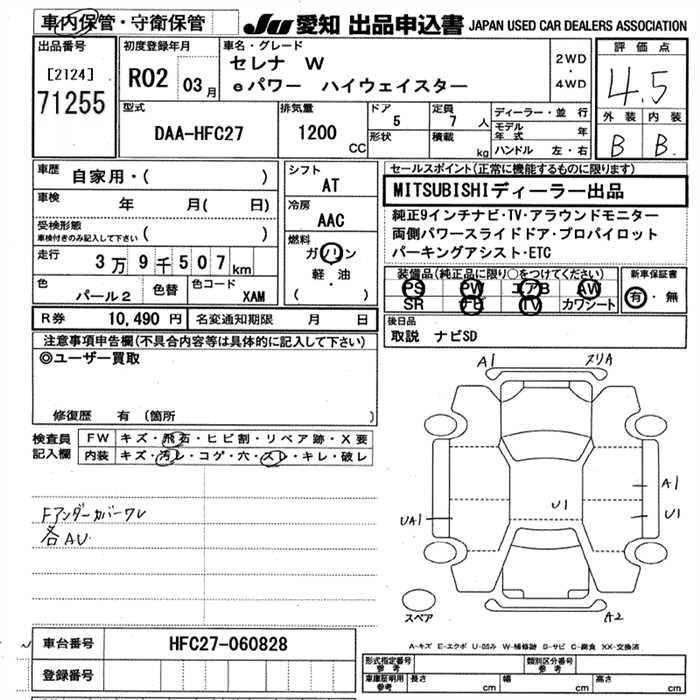 車内保管・守衛保管
JU 愛知 出品申込書 JAPAN USED CAR DEALERS ASSOCIATION
出品番号
[2124]
71255
初度登録年月
R02 03月
車名・グレード
セレナ W
eパワー ハイウェイスター
2WD
・
4WD
評価点
4.5
外装 内装
B B
型式
DAA-HFC27
排気量
1200
CC
ドア
5
形状
定員
7 人
積載
kg
ディーラー・並行
モデル年式 年
ハンドル 左・右
車歴
自家用・( )
車検
年 月( 日)
受検形態
車検付きのみ記入して下さい ( )
走行
3万9千507km
色
パール2
色替
色コード
XAM
シフト
AT
冷房
AAC
燃料
ガソリン
軽・油
( )
セールスポイント(正常に機能するものに限ります)
MITSUBISHIディーラー出品
純正9インチナビ・TV・アラウンドモニター
両側パワースライドドア・プロパイロット
パーキングアシスト・ETC
装備品(純正品に限り○をつけてください)
PS PW エアB AW
SR ナビ TV カワシート
新車保証書
有・無
R券 10,490 円
名変通知期限 月 日
後日品
取説 ナビSD
注意事項申告欄(不具合内容等は具体的に記入して下さい)
◎ユーザー買取
修復歴 有 (箇所 )
検査員
記入欄
FW キズ・飛石・ヒビ割・リペア跡・X要
内装 キズ・汚レ・コゲ・穴・スレ・キレ・破レ
Fアンダーカバーワレ
各AU
A1
ヌリA
A1
U1
U1
UA1
A2
スペア
A-キズ E-エクボ U-凹み W-補修跡 S-サビ C-腐食 XX-交換済
車台番号
HFC27-060828
登録番号
形式指定番号
参考
類別区分番号
参考
車庫証明用
参考
長さ cm
幅 cm
高さ cm